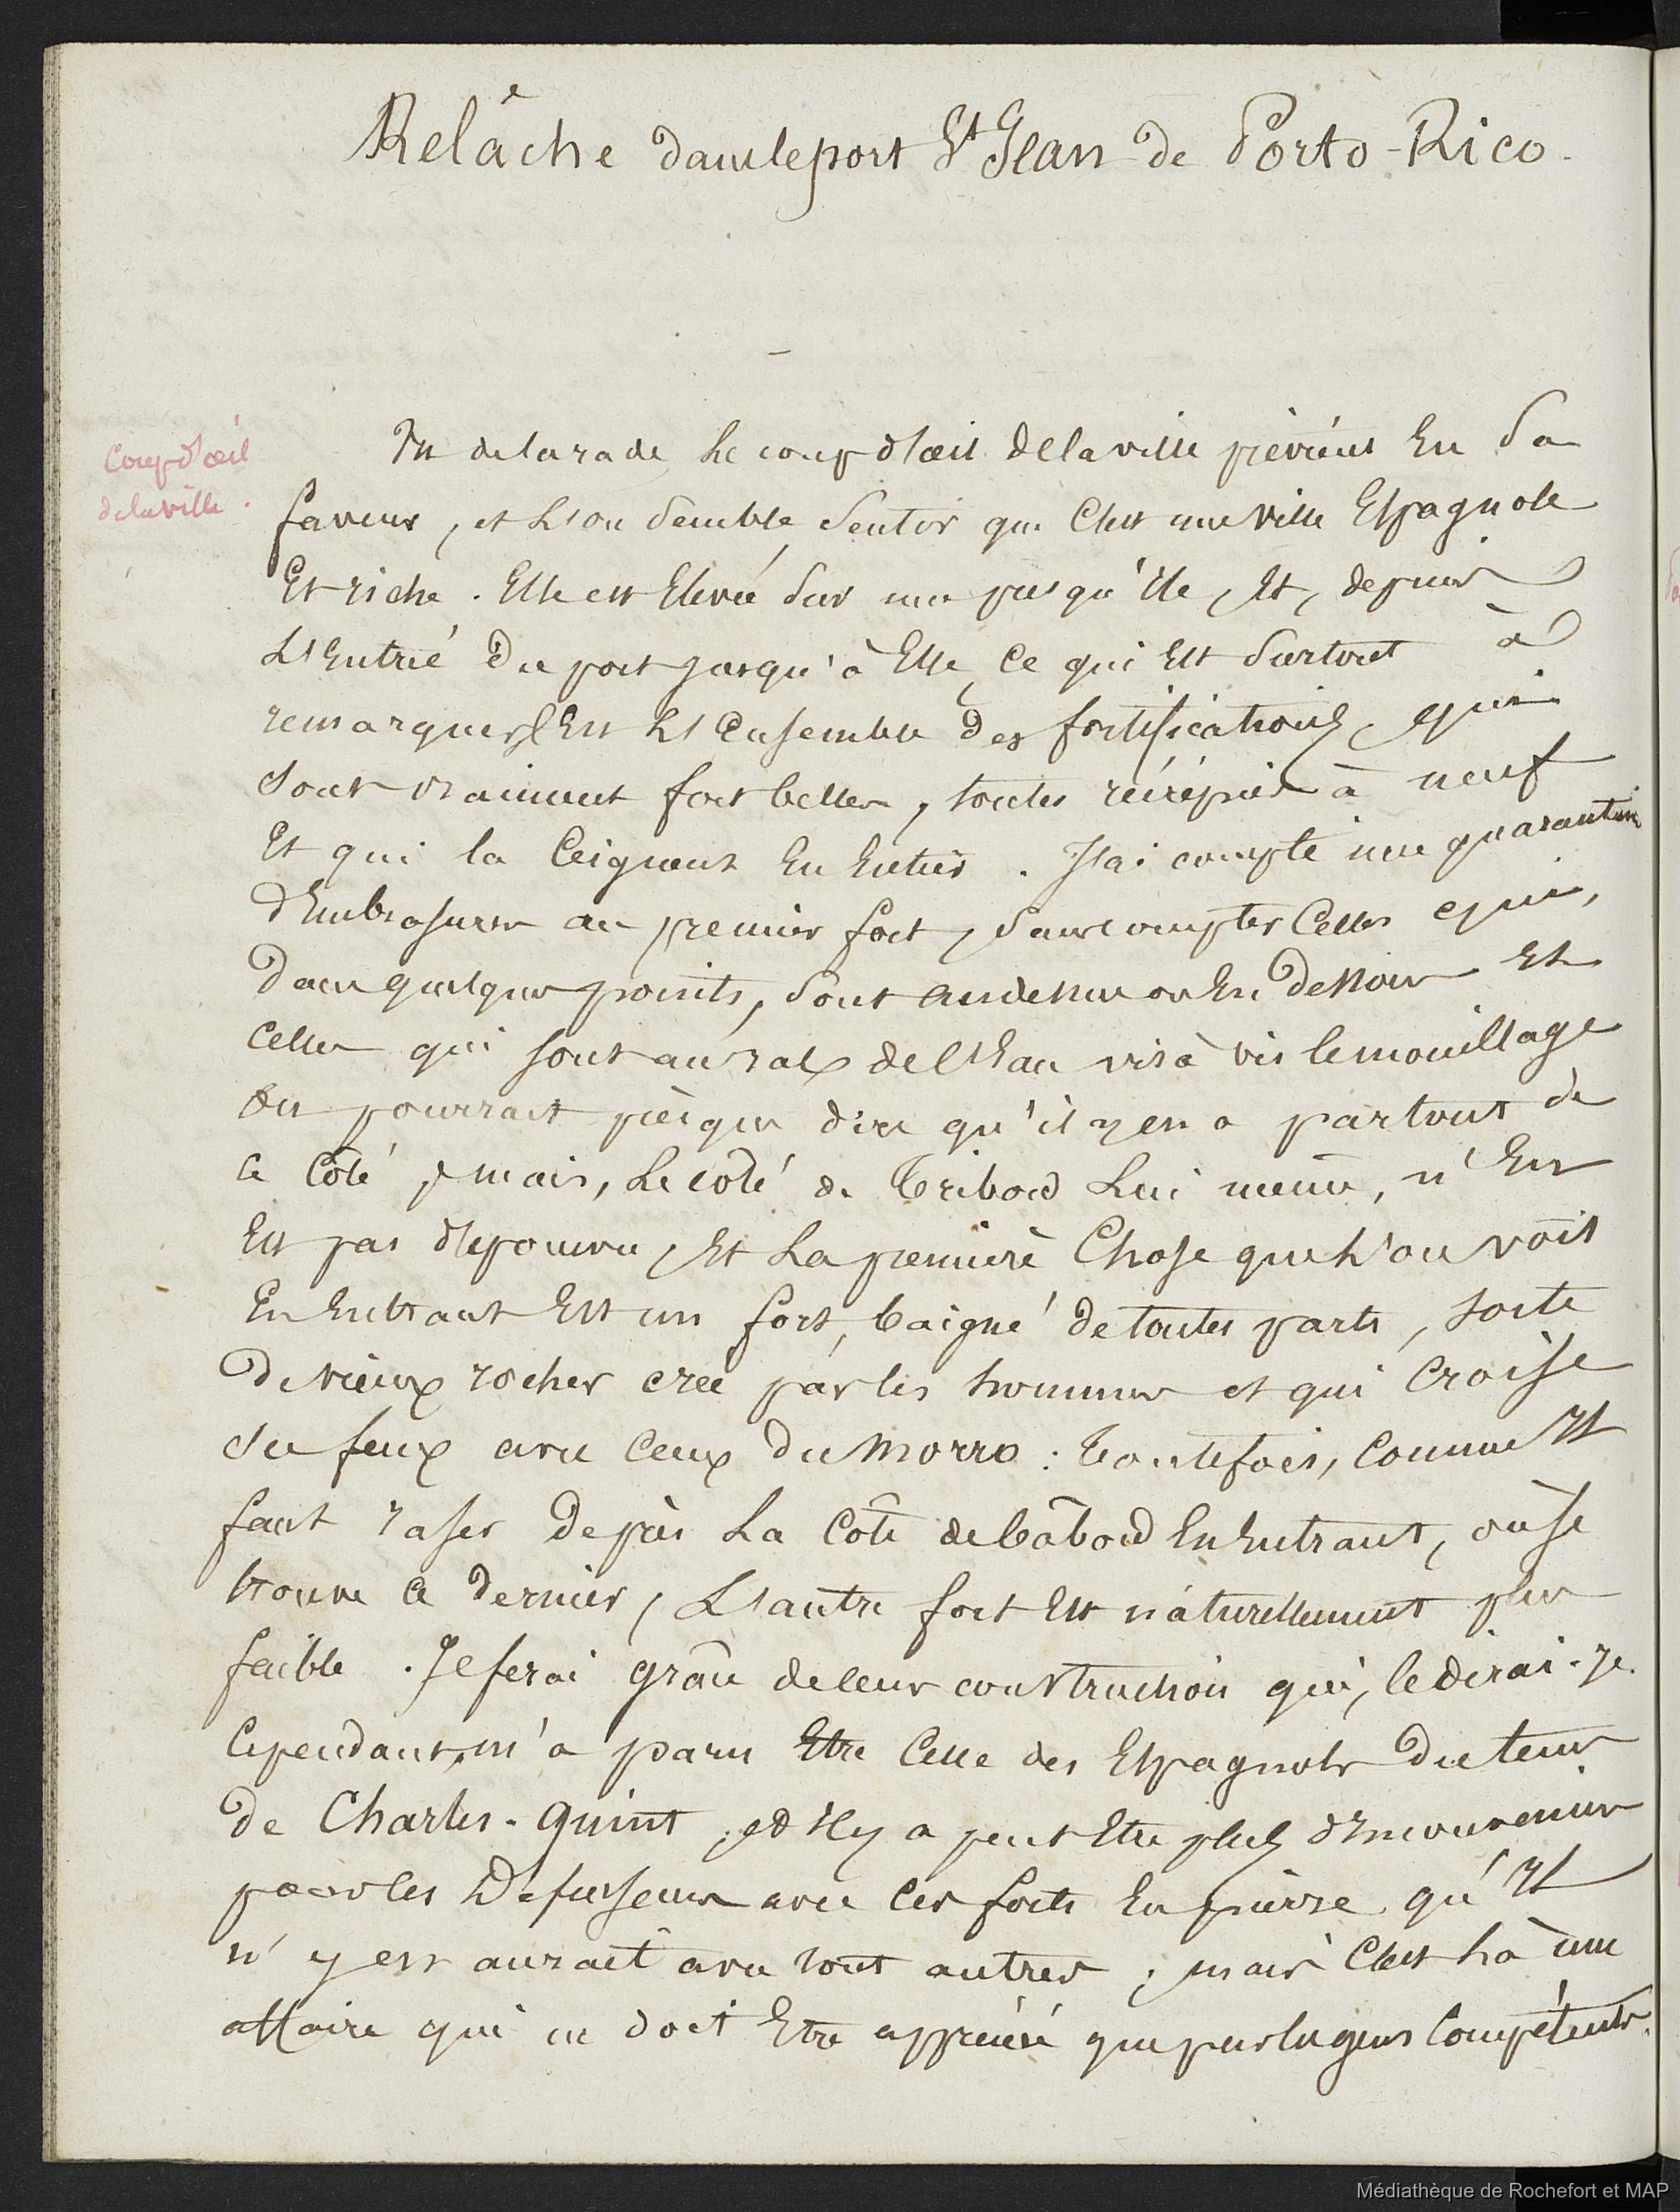 Relâche dans le port St Jean de Porto-Rico.
Coup d'œil
de la ville.
Vu de la rade, le coup d'œil de la ville prévient en sa
faveur, et l'on semble sentir que c'est une ville Espagnole
et riche. Elle est élevée sur une presqu'île, et, depuis
l'entrée du port jusqu'à elle, ce qui est surtout à
remarquer, c'est l'ensemble des fortifications, qui
sont vraiment fort belles, toutes récrépies à neuf
et qui la ceignent en entier. J'ai compté une quarantaine
d'embrasures au premier fort, sans compter celles qui,
dans quelques points, sont au dessus ou en dessous et
celles qui sont au ras de l'eau vis à vis le mouillage
on pourrait presque dire qu'il y en a partout de
ce côté, mais, le côté de tribord lui même, n'en
est pas dépourvu, et la première chose que l'on voit
en entrant est un fort, baigné de toutes parts, sorte
de vieux rocher créé par les hommes et qui croise
ses feux avec ceux du Morro : toutefois, comme il
faut raser de près la côte de bâbord en entrant, où se
trouve ce dernier, l'autre fort est naturellement plus
faible. Je ferai grâce de leur construction qui, le dirai-je
cependant, m'a paru être celle des Espagnols du tems
de Charles-Quint, et il y a peut être plus
pour les défenseurs avec ces forts en pierre qu'il
n'y en aurait avec tout autres ; mais c'est là une
affaire qui ne doit être appréciée que par les gens compétents.
Médiathèque de Rochefort et MAP